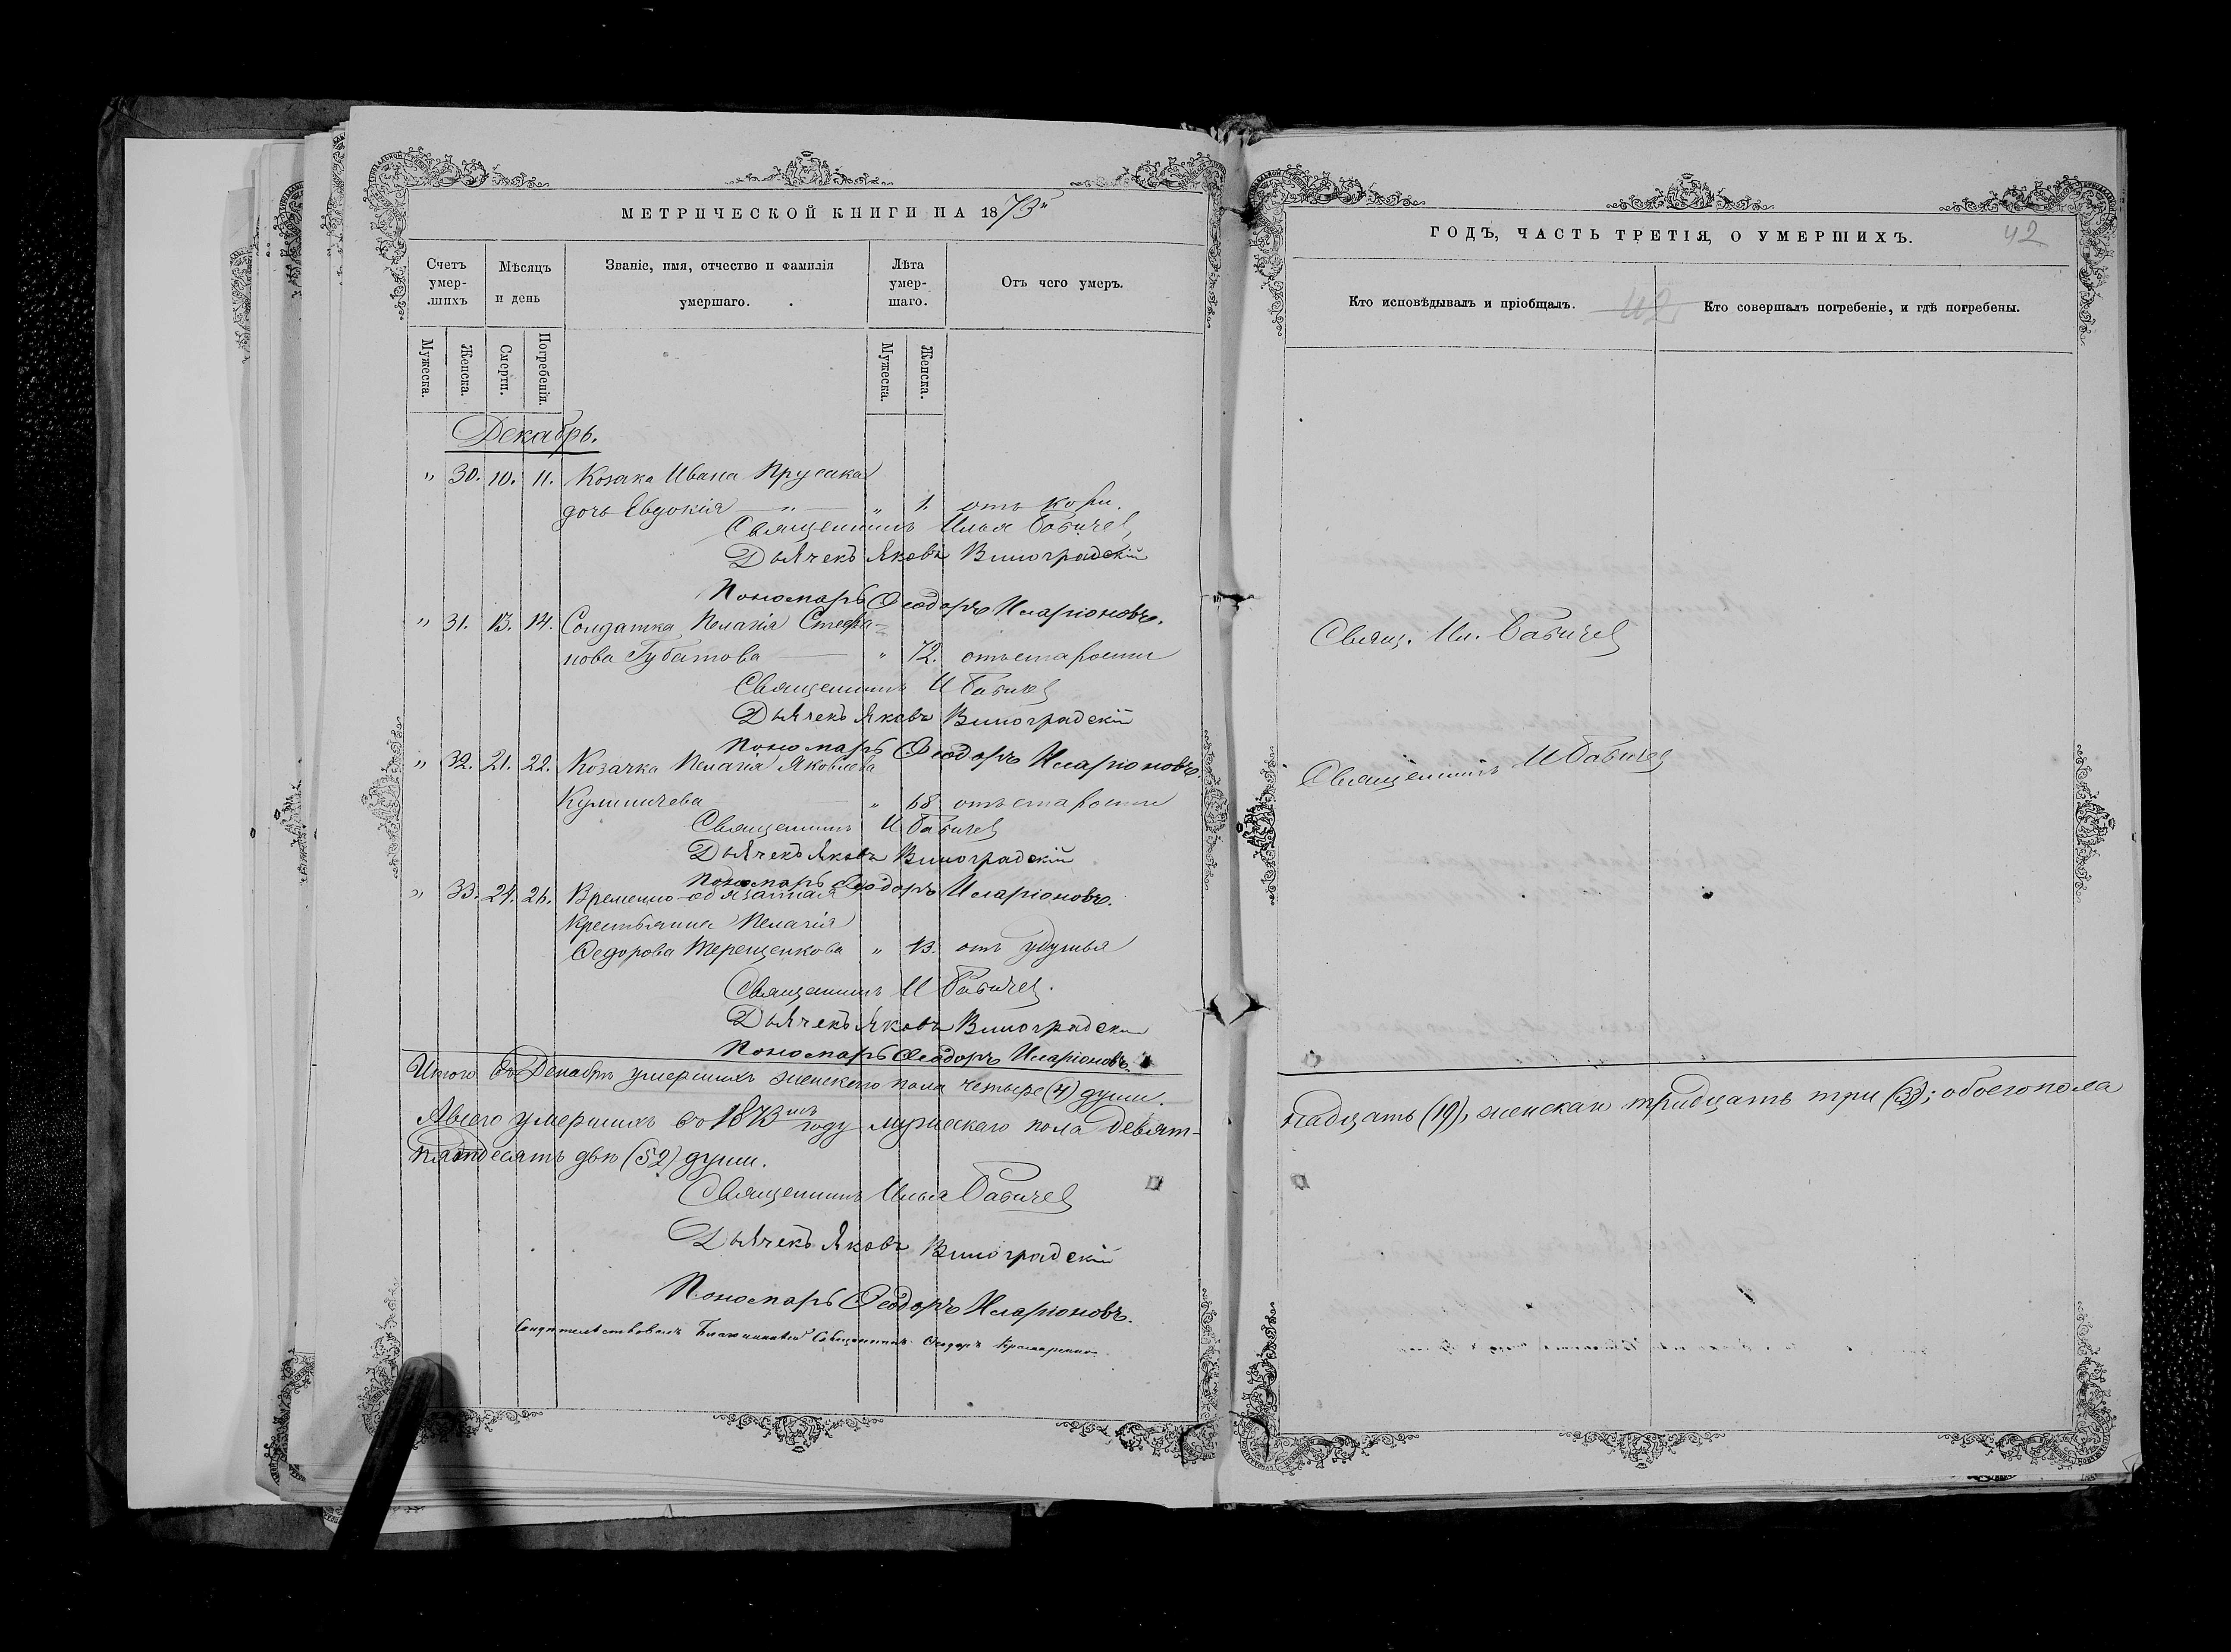 МЕТРИЧЕСКОЙ КНИГИ НА 1873й
Счетъ умер-шихъ
Мѣсяцъ и день
Званіе, имя, отчество и фамилія умершаго.
Лѣта умер-шаго.
Отъ чего умеръ.
Мужеска.
Женска.
Смерти.
Погребенія.
Мужеска.
Женска.
Декабрь.
" 30. 10. 11. Козака Ивана Прусака
дочь Евдокія — " — " 1. отъ кори.
Священникъ Илья Бабичев
Дьячекъ Яковъ Виноградскій
Пономарь Ѳеодоръ Иларіоновъ.
" 31. 13. 14. Солдатка Пелагія Стефа=
нова Губатова — " 72. отъ старости
Священникъ И Бабичев
Дьячекъ Яковъ Виноградскій
Пономарь Ѳеодоръ Иларіоновъ.
" 32. 21. 22. Козачка Пелагія Яковлева
Кулиничева — " 68 отъ старости
Священникъ И Бабичев
Дьячекъ Яковъ Виноградскій
Пономарь Ѳеодоръ Иларіоновъ.
" 33. 24. 26. Временно-обязанная
крестьянка Пелагія
Ѳедорова Терещенкова " 13. отъ удушья
Священникъ И Бабичев.
Дьячекъ Яковъ Виноградскій
Пономарь Ѳеодоръ Иларіоновъ.
Итого въ Декабрѣ умершихъ женскаго пола четыре (4) души.
Авсего умершихъ въ 1873мъ году мужескаго пола девят-
пятдесятъ двѣ (52) души.
Священникъ Илья Бабичев
Дьячекъ Яковъ Виноградскій
Пономарь Ѳеодоръ Иларіоновъ.
Свидетельствовалъ Благочинный Священникъ Ѳеодоръ
ГОДЪ, ЧАСТЬ ТРЕТІЯ, О УМЕРШИХЪ.
42
Кто исповѣдывалъ и пріобщалъ.
42
Кто совершалъ погребеніе, и гдѣ погребены.
Свящ. Ил. Бабичев
Священникъ И Бабичев
надцать (19), женскаго тридцать три (33); обоего пола